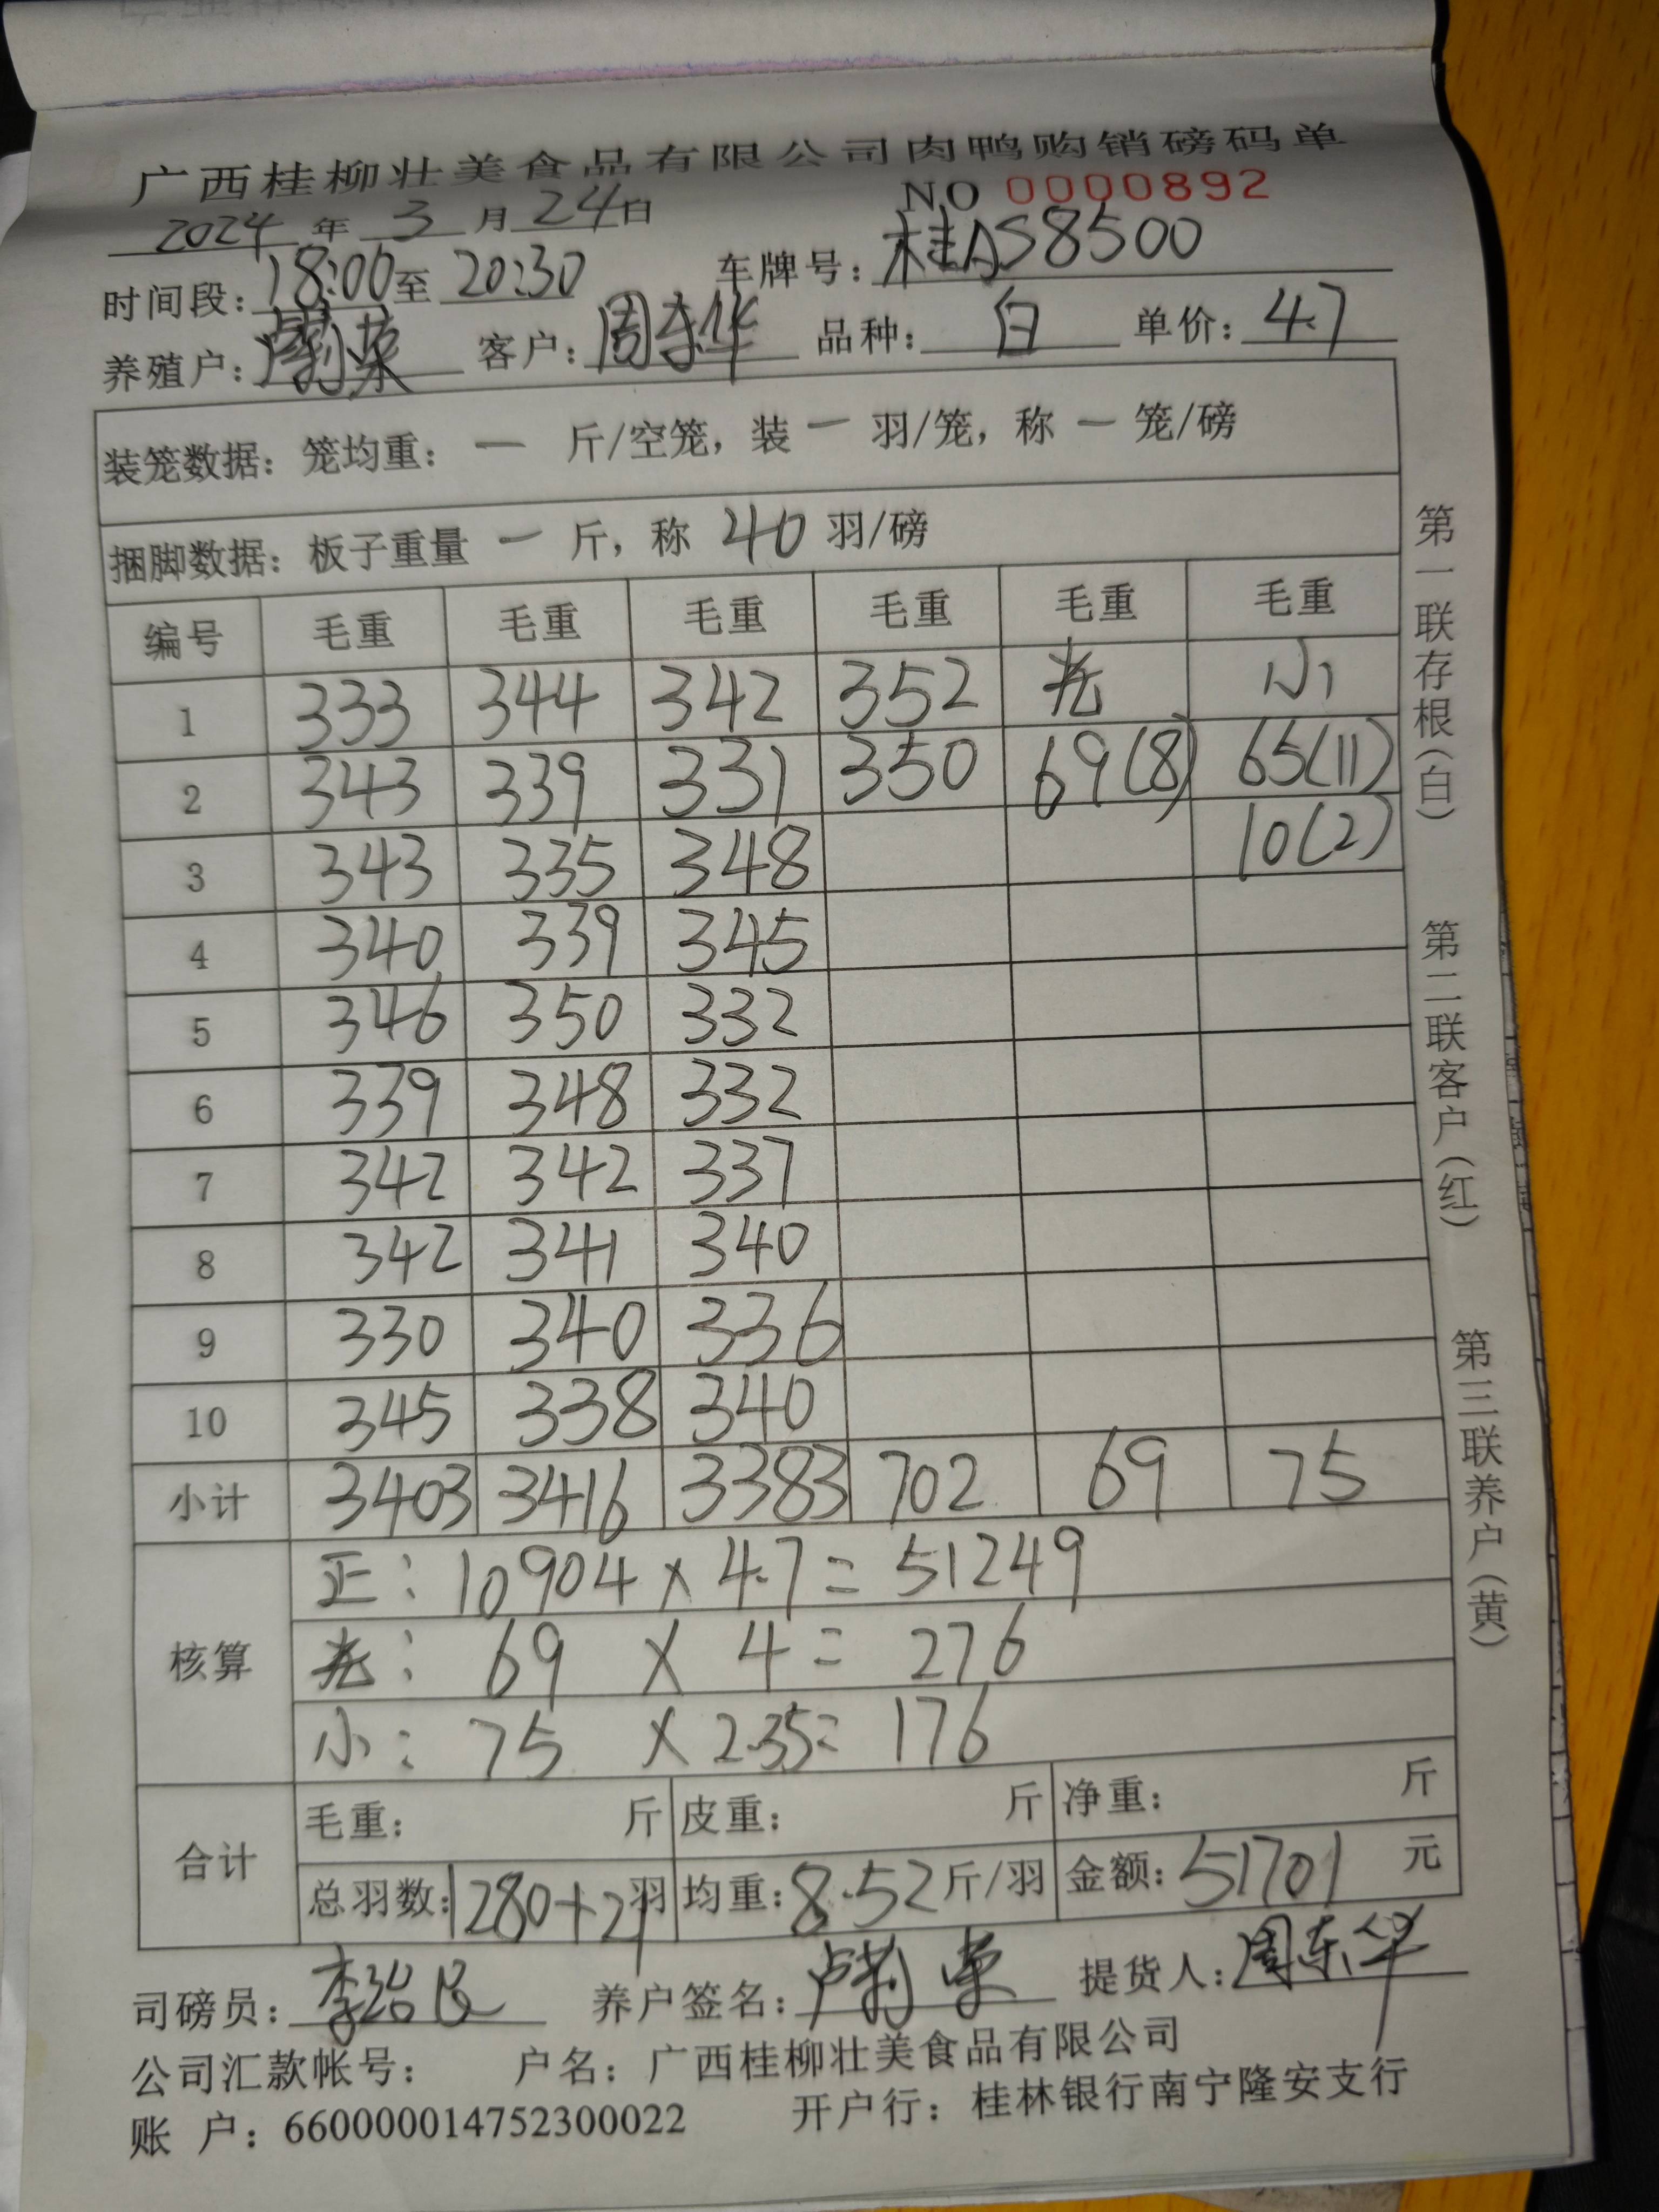 广西桂柳壮美食品有限公司肉鸭购销磅码单
NO 0000892
2024 年 3 月 24 日
时间段: 18:00 至 20:30 车牌号: 桂AS8500
养殖户: 荣 客户: 周东华 品种: 白 单价: 4.7
装笼数据: 笼均重: 一 斤/空笼, 装 一 羽/笼, 称 一 笼/磅
捆脚数据: 板子重量 一 斤, 称 40 羽/磅
编号 毛重 毛重 毛重 毛重 毛重 毛重
1 333 344 342 352 光 小
2 343 339 331 350 69(8) 65(11)
3 343 335 348 10(2)
4 340 339 345
5 346 350 332
6 339 348 332
7 342 342 337
8 342 341 340
9 330 340 336
10 345 338 340
小计 3403 3416 3383 702 69 75
核算
正: 10904 × 4.7 = 51249
光: 69 × 4 = 276
小: 75 × 2.35= 176
合计
毛重: 斤 皮重: 斤 净重: 斤
总羽数: 1280+21 羽 均重: 8.52 斤/羽 金额: 51701 元
司磅员: 李 养户签名: 卢 荣 提货人: 周东华
公司汇款帐号: 户名: 广西桂柳壮美食品有限公司
账 户: 660000014752300022 开户行: 桂林银行南宁隆安支行
第一联存根(白) 第二联客户(红) 第三联养户(黄)